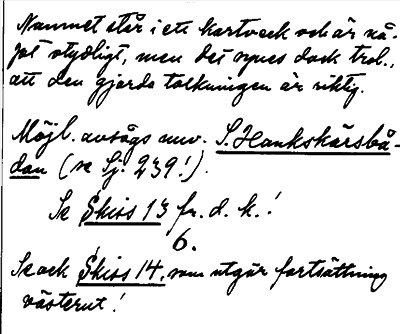 Namnet står i ett kartveck och är nå-
got otydligt, men det synes dock trol.,
att den gjorda tolkningen är riktig.
Möjl. avsågs nuv. S. Hankskärsbå-
dan (se Sj. 239!).
Se Skiss 13 fr. d. k.!
6.
Se ock Skiss 14, som utgör fortsättning
västerut!